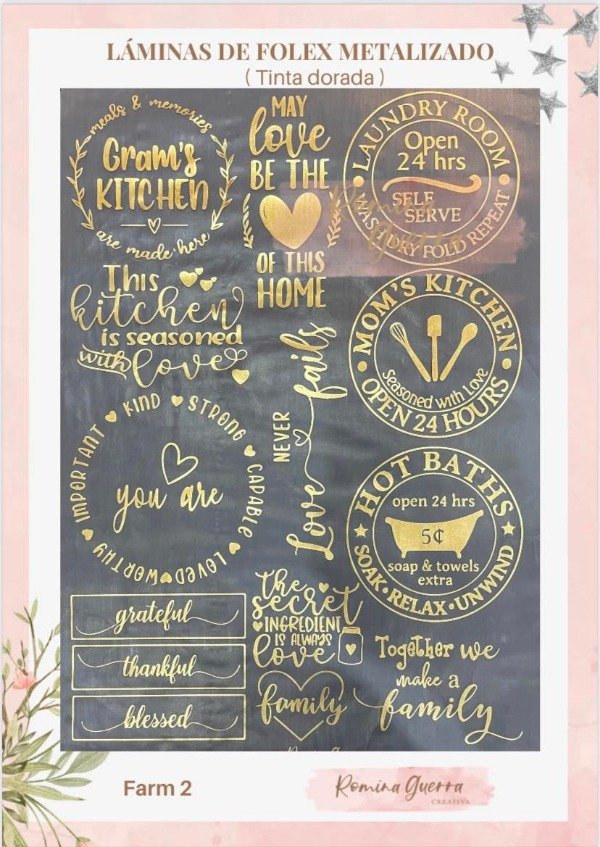 LÁMINAS DE FOLEX METALIZADO
( Tinta dorada )
meals & memories
Gram's
KITCHEN
are made here
MAY
love
BE THE
OF THIS
HOME
LAUNDRY ROOM
Open
24 hrs
SELF
SERVE
WASH DRY FOLD REPEAT
This
kitchen
is seasoned
with love
Love NEVER fails
MOM'S KITCHEN
Seasoned with Love
OPEN 24 HOURS
you are
KIND STRONG CAPABLE LOVED WORTHY IMPORTANT
HOT BATHS
open 24 hrs
5¢
soap & towels
extra
SOAK • RELAX • UNWIND
grateful
thankful
blessed
the
secret
INGREDIENT
IS ALWAYS
love
family
Together we
make a
family
Farm 2
Romina Guerra
CREATIVA